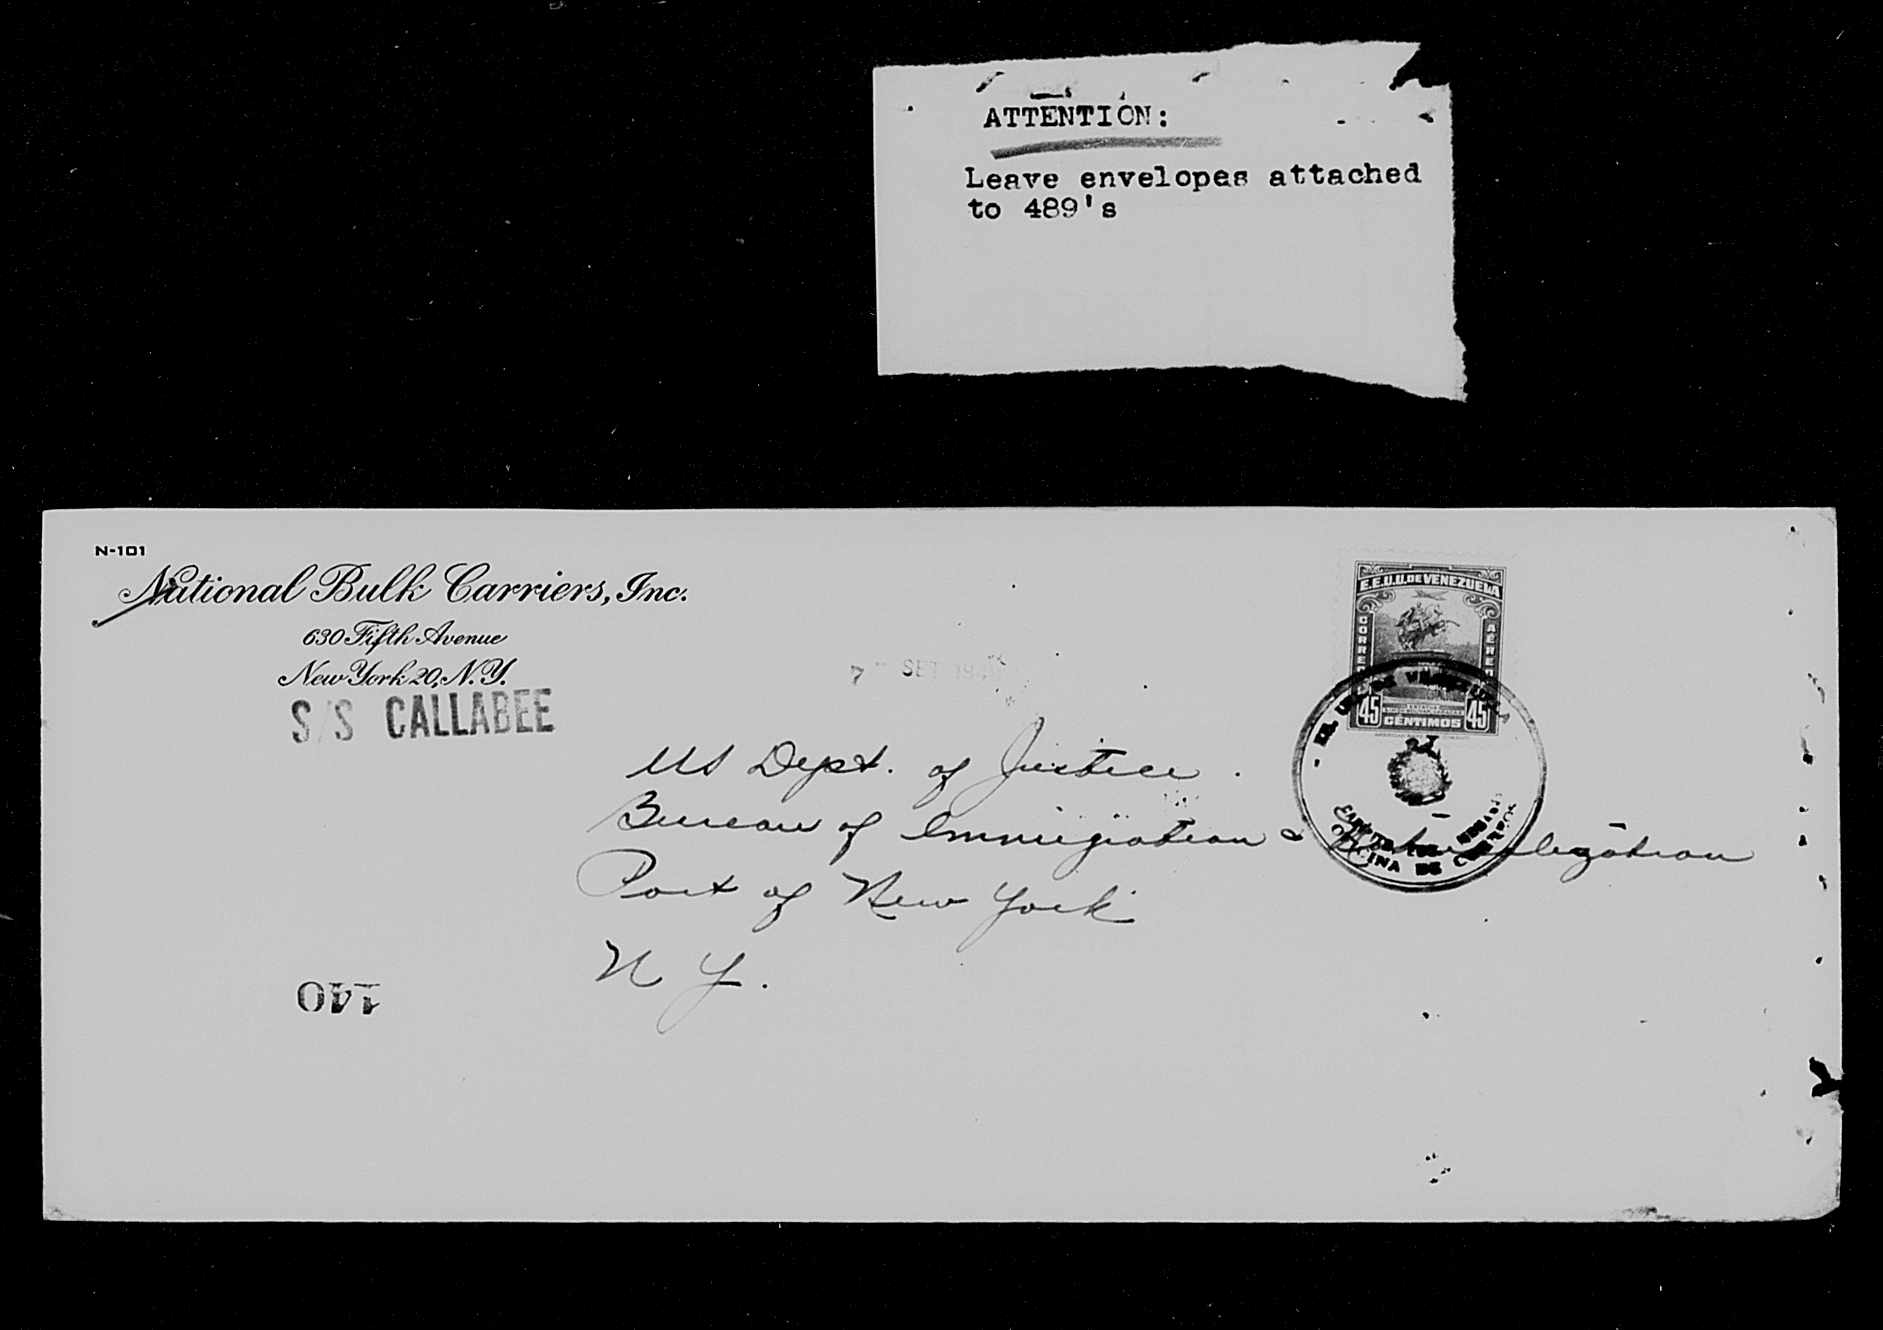 ATTENTION:
Leave envelopes attached
to 489's
N-101
National Bulk Carriers, Inc.
630 Fifth Avenue
New York 20, N.Y.
S/S CALLABEE
7 SET 194
E.E.U.U. DE VENEZUELA
CORREO AEREO
45 CÉNTIMOS 45
DE VENEZUELA
OFICINA DE CORREOS
US Dept. of Justice.
Bureau of Immigration & Naturalization
Port of New York
N Y.
140